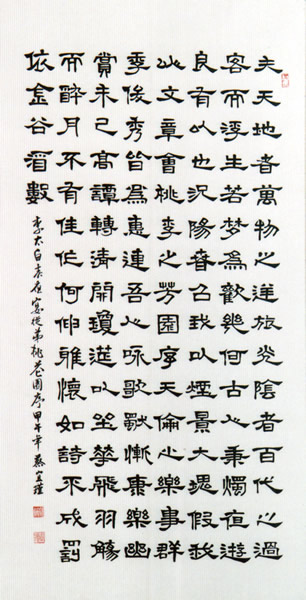 夫天地者萬物之逆旅光陰者百代之過
客而浮生若夢為歡幾何古人秉燭夜遊
良有以也況陽春召我以煙景大塊假我
以文章會桃李之芳園序天倫之樂事群
季俊秀皆為惠連吾人詠歌獨慚康樂幽
賞未已高譚轉清開瓊筵以坐華飛羽觴
而醉月不有佳作何伸雅懷如詩不成罰
依金谷酒數
李太白春夜宴從弟桃花園序甲午年